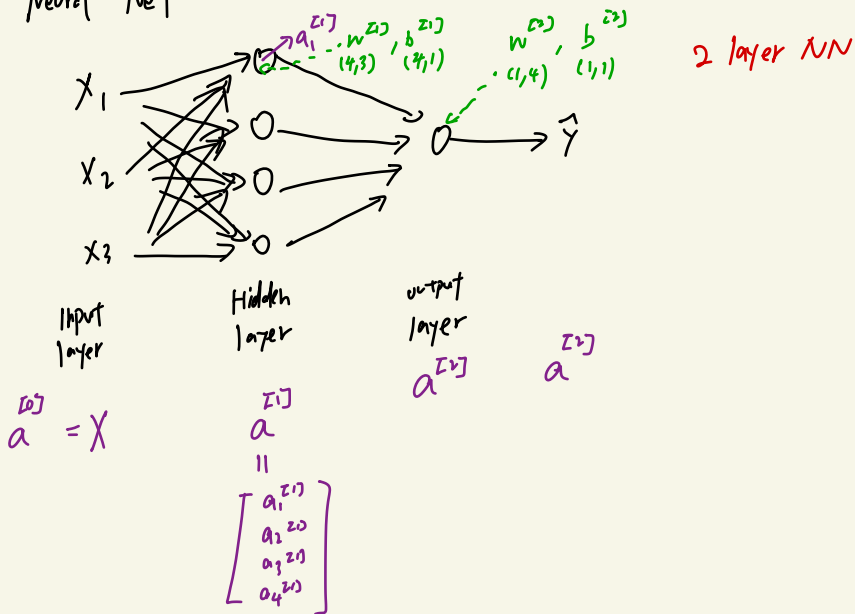 Neural Net
a₁^[1]
w^[1], b^[1]
(4,3) (4,1)
w^[2], b^[2]
(1,4) (1,1)
2 layer NN
x₁
x₂
x₃
ŷ
Input layer
Hidden layer
output layer
a^[0] = X
a^[1]
=
a₁^[1]
a₂^[1]
a₃^[1]
a₄^[1]
a^[2]
a^[2]